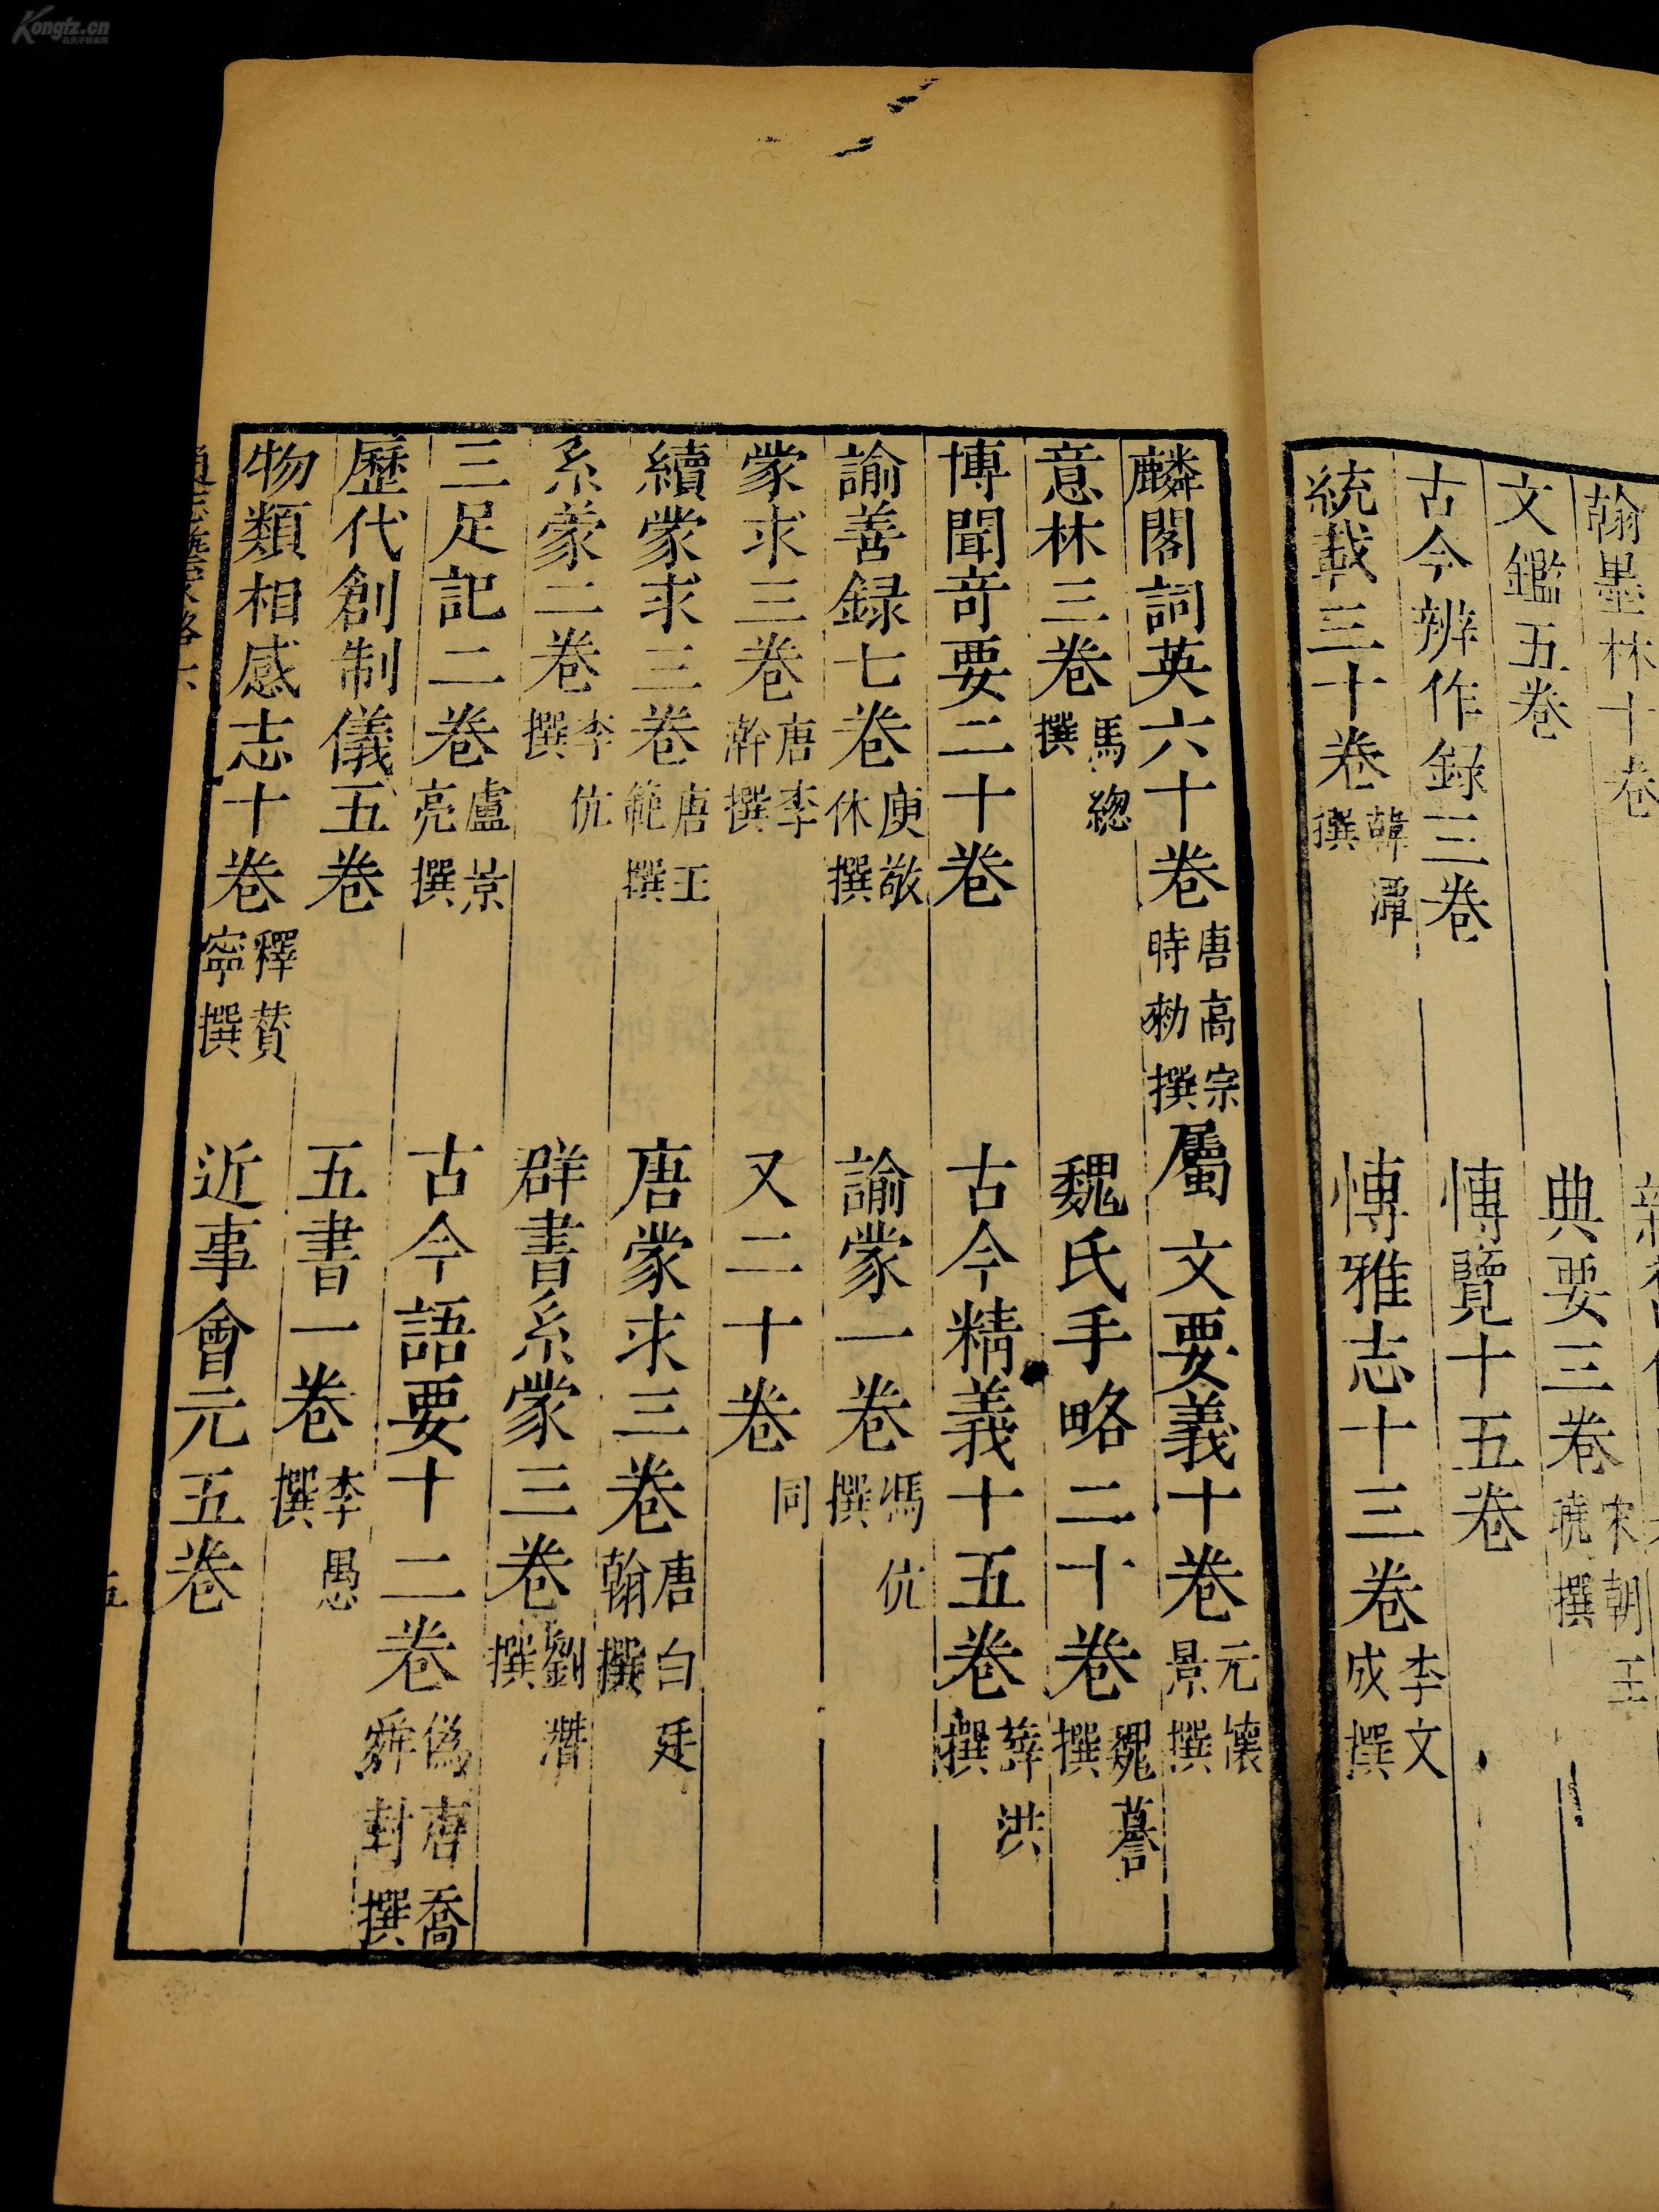 Kongfz.cn
孔夫子拍卖网
翰墨林十卷
文鑑五卷
典要三卷 宋朝王曉撰
古今辨作録三卷
愽覽十五卷
統載三十卷 韓潭撰
愽雅志十三卷 李文成撰
麟閣詞英六十卷 唐高宗時勑撰
屬文要義十卷 元懷景撰
意林三卷 馬緫撰
魏氏手略二十卷 魏謩撰
博聞竒要二十卷
古今精義十五卷 薛洪撰
諭善録七卷 庾敬休撰
諭蒙一卷 馮伉撰
蒙求三卷 唐李澣撰
又二十卷 同
續蒙求三卷 唐王範撰
唐蒙求三卷 唐白廷翰撰
系蒙二卷 李伉撰
群書系蒙三卷 劉潛撰
三足記二卷 盧景亮撰
古今語要十二卷 偽唐喬舜封撰
歷代創制儀五卷
五書一卷 李愚撰
物類相感志十卷 釋贊寧撰
近事會元五卷
五